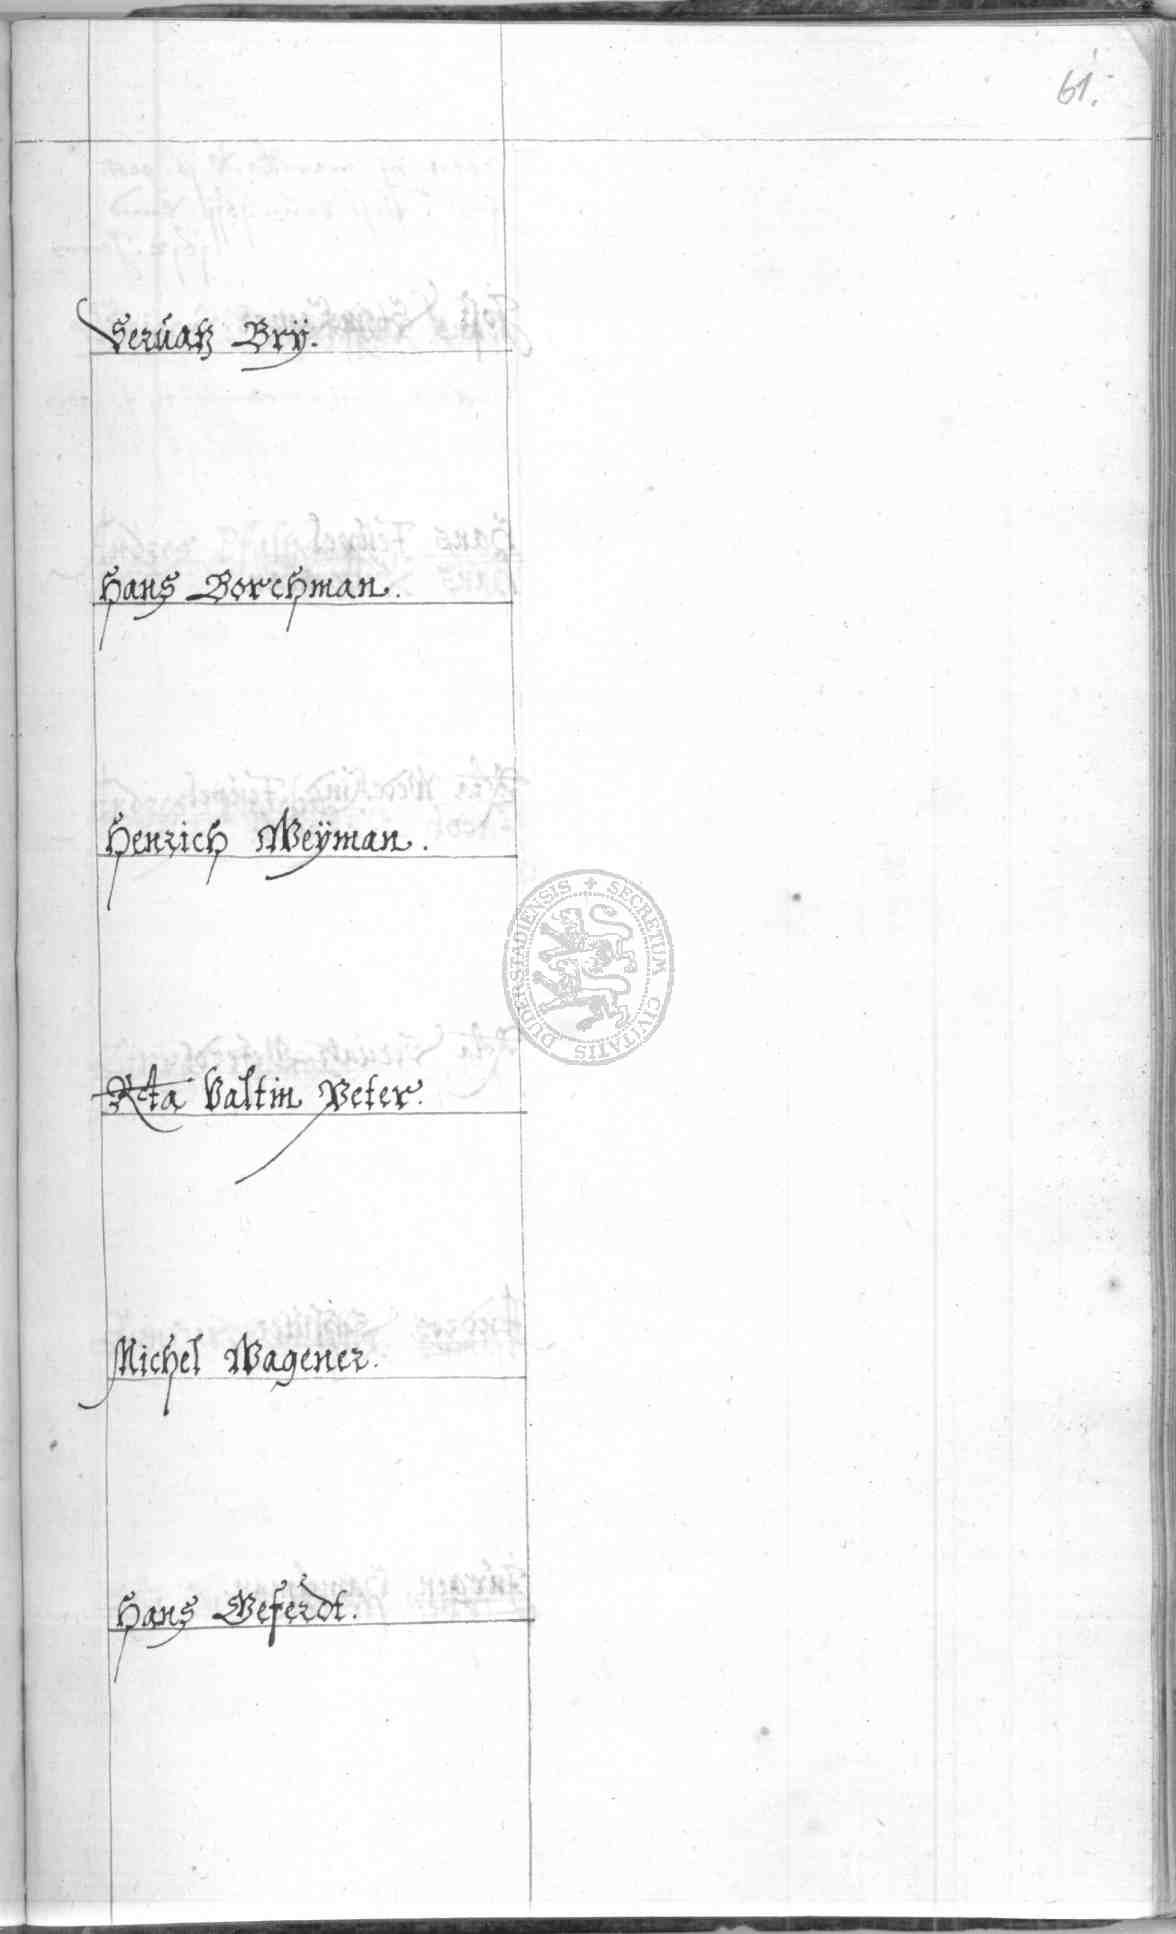 61.
Seruatz Brÿ.
Hans Borchman.
Henrich Weÿman.
Rta Valtin Peter.
Michel Wagener.
Hans Geferdt.
DUDERSTADIENSIS + SECRETUM CIVITATIS